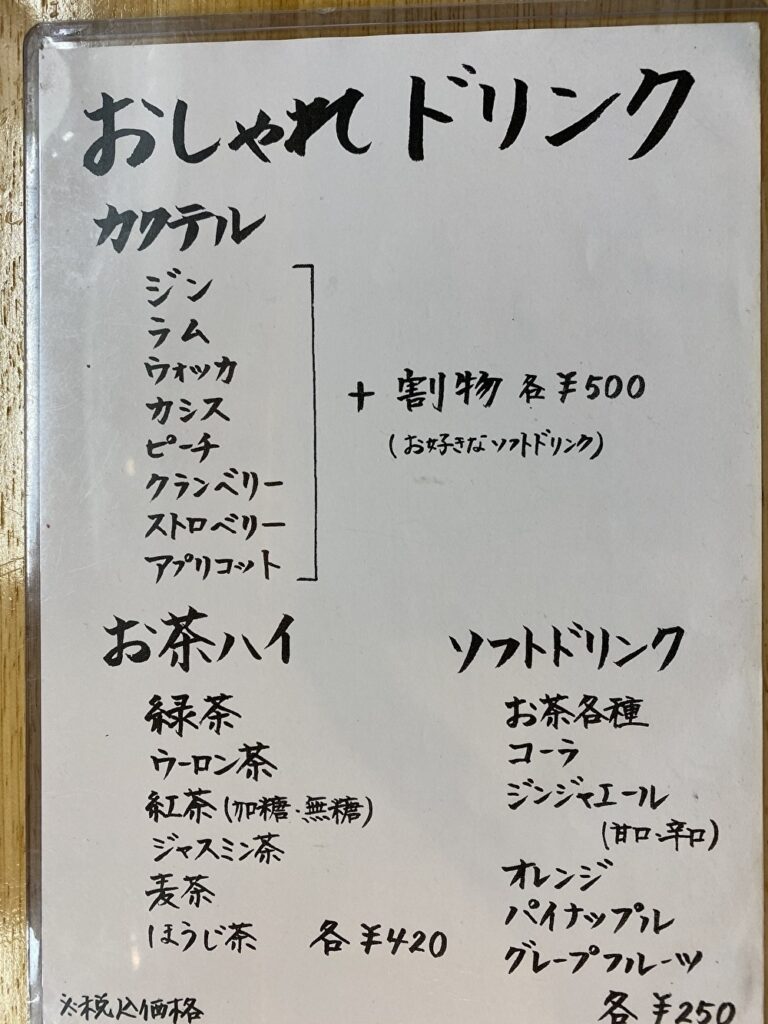 おしゃれドリンク
カクテル
ジン
ラム
ウォッカ
カシス
ピーチ
クランベリー
ストロベリー
アプリコット
+ 割物 各¥500
(お好きなソフトドリンク)
お茶ハイ
緑茶
ウーロン茶
紅茶(加糖・無糖)
ジャスミン茶
麦茶
ほうじ茶 各¥420
ソフトドリンク
お茶各種
コーラ
ジンジャエール
(甘口・辛口)
オレンジ
パイナップル
グレープフルーツ
各¥250
※税込価格